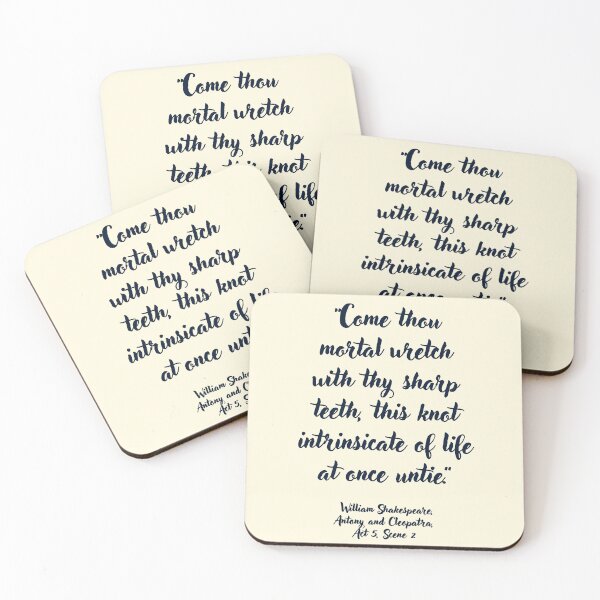 "Come thou
mortal wretch
with thy sharp
teeth, this knot
of life
"Come thou
mortal wretch
with thy sharp
teeth, this knot
intrinsicate of life
at once
"Come thou
mortal wretch
with thy sharp
teeth, this knot
intrinsicate of
at once untie
William
Antony and
Act 5,
"Come thou
mortal wretch
with thy sharp
teeth, this knot
intrinsicate of life
at once untie."
William Shakespeare,
Antony and Cleopatra,
Act 5, Scene 2